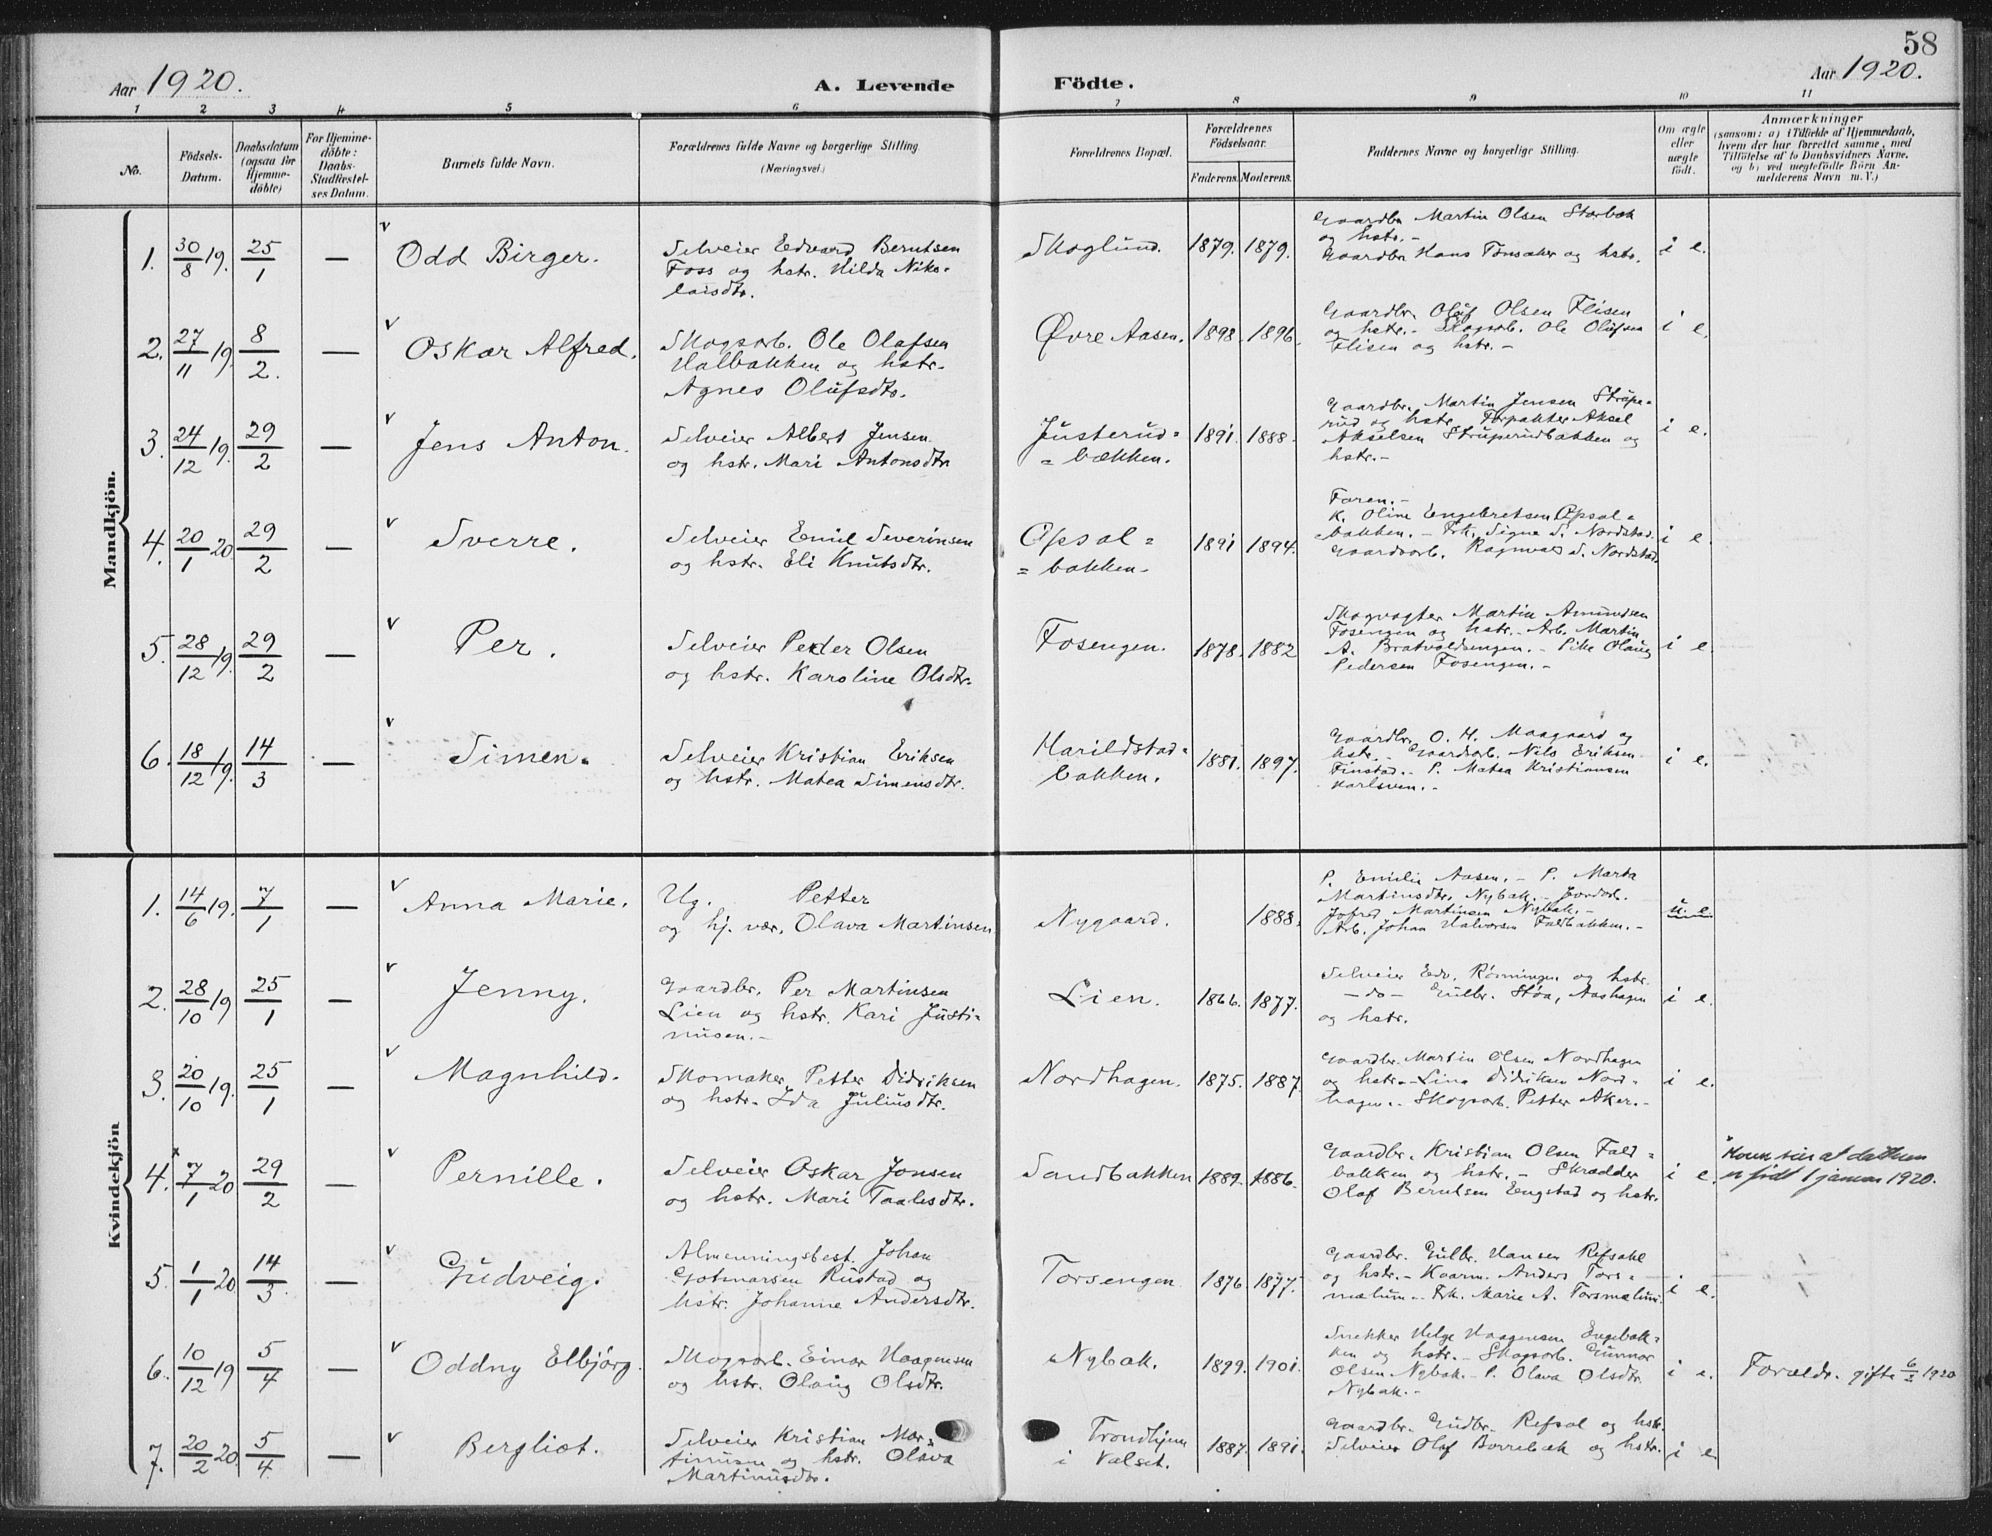 58
Aar 1920.
A. Levende
Födte.
Aar 1920.
1 2 3 4 5 6 7 8 9 10 11
No.
Födsels-
Datum.
Daabsdatum
(ogsaa for
Hjemme-
döbte)
For Hjemme-
döbte:
Daabs-
Stadfæstel-
ses Datum.
Barnets fulde Navn.
Forældrenes fulde Navne og borgerlige Stilling
(Næringsvei.)
Forældrenes Bopæl.
Forældrenes
Födselsaar.
Faderens. Moderens.
Faddernes Navne og borgerlige Stilling.
Om ægte
eller
uægte
födt.
Anmærkninger
(saasom: a) i Tilfælde af Hjemmedaab,
hvem der har forrettet samme, med
Tilföielse af to Daabsvidners Navne.
og b) ved uægtefödte Börn An-
melderens Navn m. V.)
Mandkjön.
1. 30/8 19. 25/1 — Odd Birger.
Selveier Edvard Berntsen
Foss og hstr. Hilda Niko-
laisdtr.
Skoglund. 1879. 1879.
Gaardbr Martin Olsen Storbæk
og hstr.-
Gaardbr Hans Tonsaker og hstr.
i e.
2. 27/11 19. 8/2. — Oskar Alfred.
Skogsarb. Ole Olafsen
Halbakken og hstr.
Agnes Olufsdtr.
Øvre Aasen. 1898. 1896.
Gaardbr. Oluf Olsen Flisen
og hstr.- Skogsarb. Ole Olufsen
Flisen og hstr.-
i e.
3. 24/12 19. 29/2 — Jens Anton.
Selveier Albert Jensen
og hstr. Mari Antonsdtr.
Justerud=
=bækken. 1891. 1888.
Gaardbr. Martin Jensen Strupe=
rud og hstr. Forpakter Aksel
Akselsen Struperudbakken og
hstr.-
i e.
4. 20/1 20 29/2 — Sverre.
Selveier Emil Severinsen
og hstr. Eli Knutsdtr.
Opsal=
=bakken- 1891 1894.
Faren.-
K. Oline Engebretsen Opsal=
bakken.- Frk. Signe S. Nordstad.
Gaardsarb. Ragnvald S. Nordstad.
i e.
5. 28/12 19. 29/2 — Per.
Selveier Peder Olsen
og hstr. Karoline Olsdtr.
Fosengen. 1878. 1882
Skogvogter Martin Amundsen
Fosengen og hstr.- Arb. Martin
A. Bratvoldsengen.- Pike Olaug
Pedersen Fosengen.-
i e.
6. 18/12 19. 14/3 — Simen.
Selveier Kristian Eriksen
og hstr. Matea Simensdtr.
Harildstad=
bakken. 1881. 1897.
Gaardbr. O. H. Maagaard og
hstr.- Gaardsarb. Nils Eriksen
Finstad.- P. Matea Kristiansen
Karlsven.-
i e.
Kvindekjön
1. 14/6 19. 7/1 — Anna Marie.
Ug. Petter
og hj. vær. Olava Martinsen
Nygaard. 1888.
P. Emilie Aasen.- P. Marta
Martinsdtr. Nybak.- Jordarb.
Martinsen Nybak.-
Arb. Johan Halvorsen Faldbakken.-
u. e.
2. 28/10 19 25/1 — Jenny.
Gaardbr. Per Martinsen
Lien og hstr. Kari Justi-
nusen.-
Lien. 1866. 1877.
Selveier Edv. Rønningen og hstr.
—do— Gulbr. Støa, Aashagen
og hstr.
i e.
3. 20/10 19. 25/1 — Magnhild.
Skomaker Petter Didriksen
og hstr. Ida Juliusdtr.
Nordhagen. 1875. 1887.
Gaardbr. Martin Olsen Nordhagen
og hstr.- Lina Didriksen Nord=
hagen.- Skogsarb. Petter Aker.-
i e.
4. x 7/1 20 29/2 — Pernille.
Selveier Oskar Jonsen
og hstr. Mari Taalesdtr.
Sandbakken 1889. 1886.
Gaardbr. Kristian Olsen Fald=
bakken og hstr.- Skrædder
Olaf Berntsen Engstad og hstr.
i e.
er født 1 januar 1920.
5. 1/1 20 14/3. — Gudveig.
Almenningsbest. Johan
Gotmarsen Rustad og
hstr. Johanne Andersdtr.
Torsengen 1876. 1877.
Gaardbr. Gulbr. Hansen Refsahl
og hstr.- Kaarm. Anders Tors=
mælum.- Frk. Marie A. Torsmælum.
i e.
6. 10/12 19 5/4 — Oddny Elbjörg.
Skogsarb. Einar Haagensen
og hstr. Olaug Olsdtr.
Nybak. 1899. 1901.
Snekker Helge Haagensen Engebak=
ken og hstr.- Skogsarb. Gunnar
Olsen Nybak.- P. Olava Olsdtr.
Nybak.-
i e.
Foreldr. gifte 6/2 1920
7. 20/2 20. 5/4. — Bergliot.
Selveier Kristian Mar-
tinusen og hstr. Olava
Martinusdtr.
Trondhjem
i Valset. 1887. 1891.
Gaardbr. Gudbr. Refsal og hstr.
Selveier Olaf Borrebæk og hstr.
i e